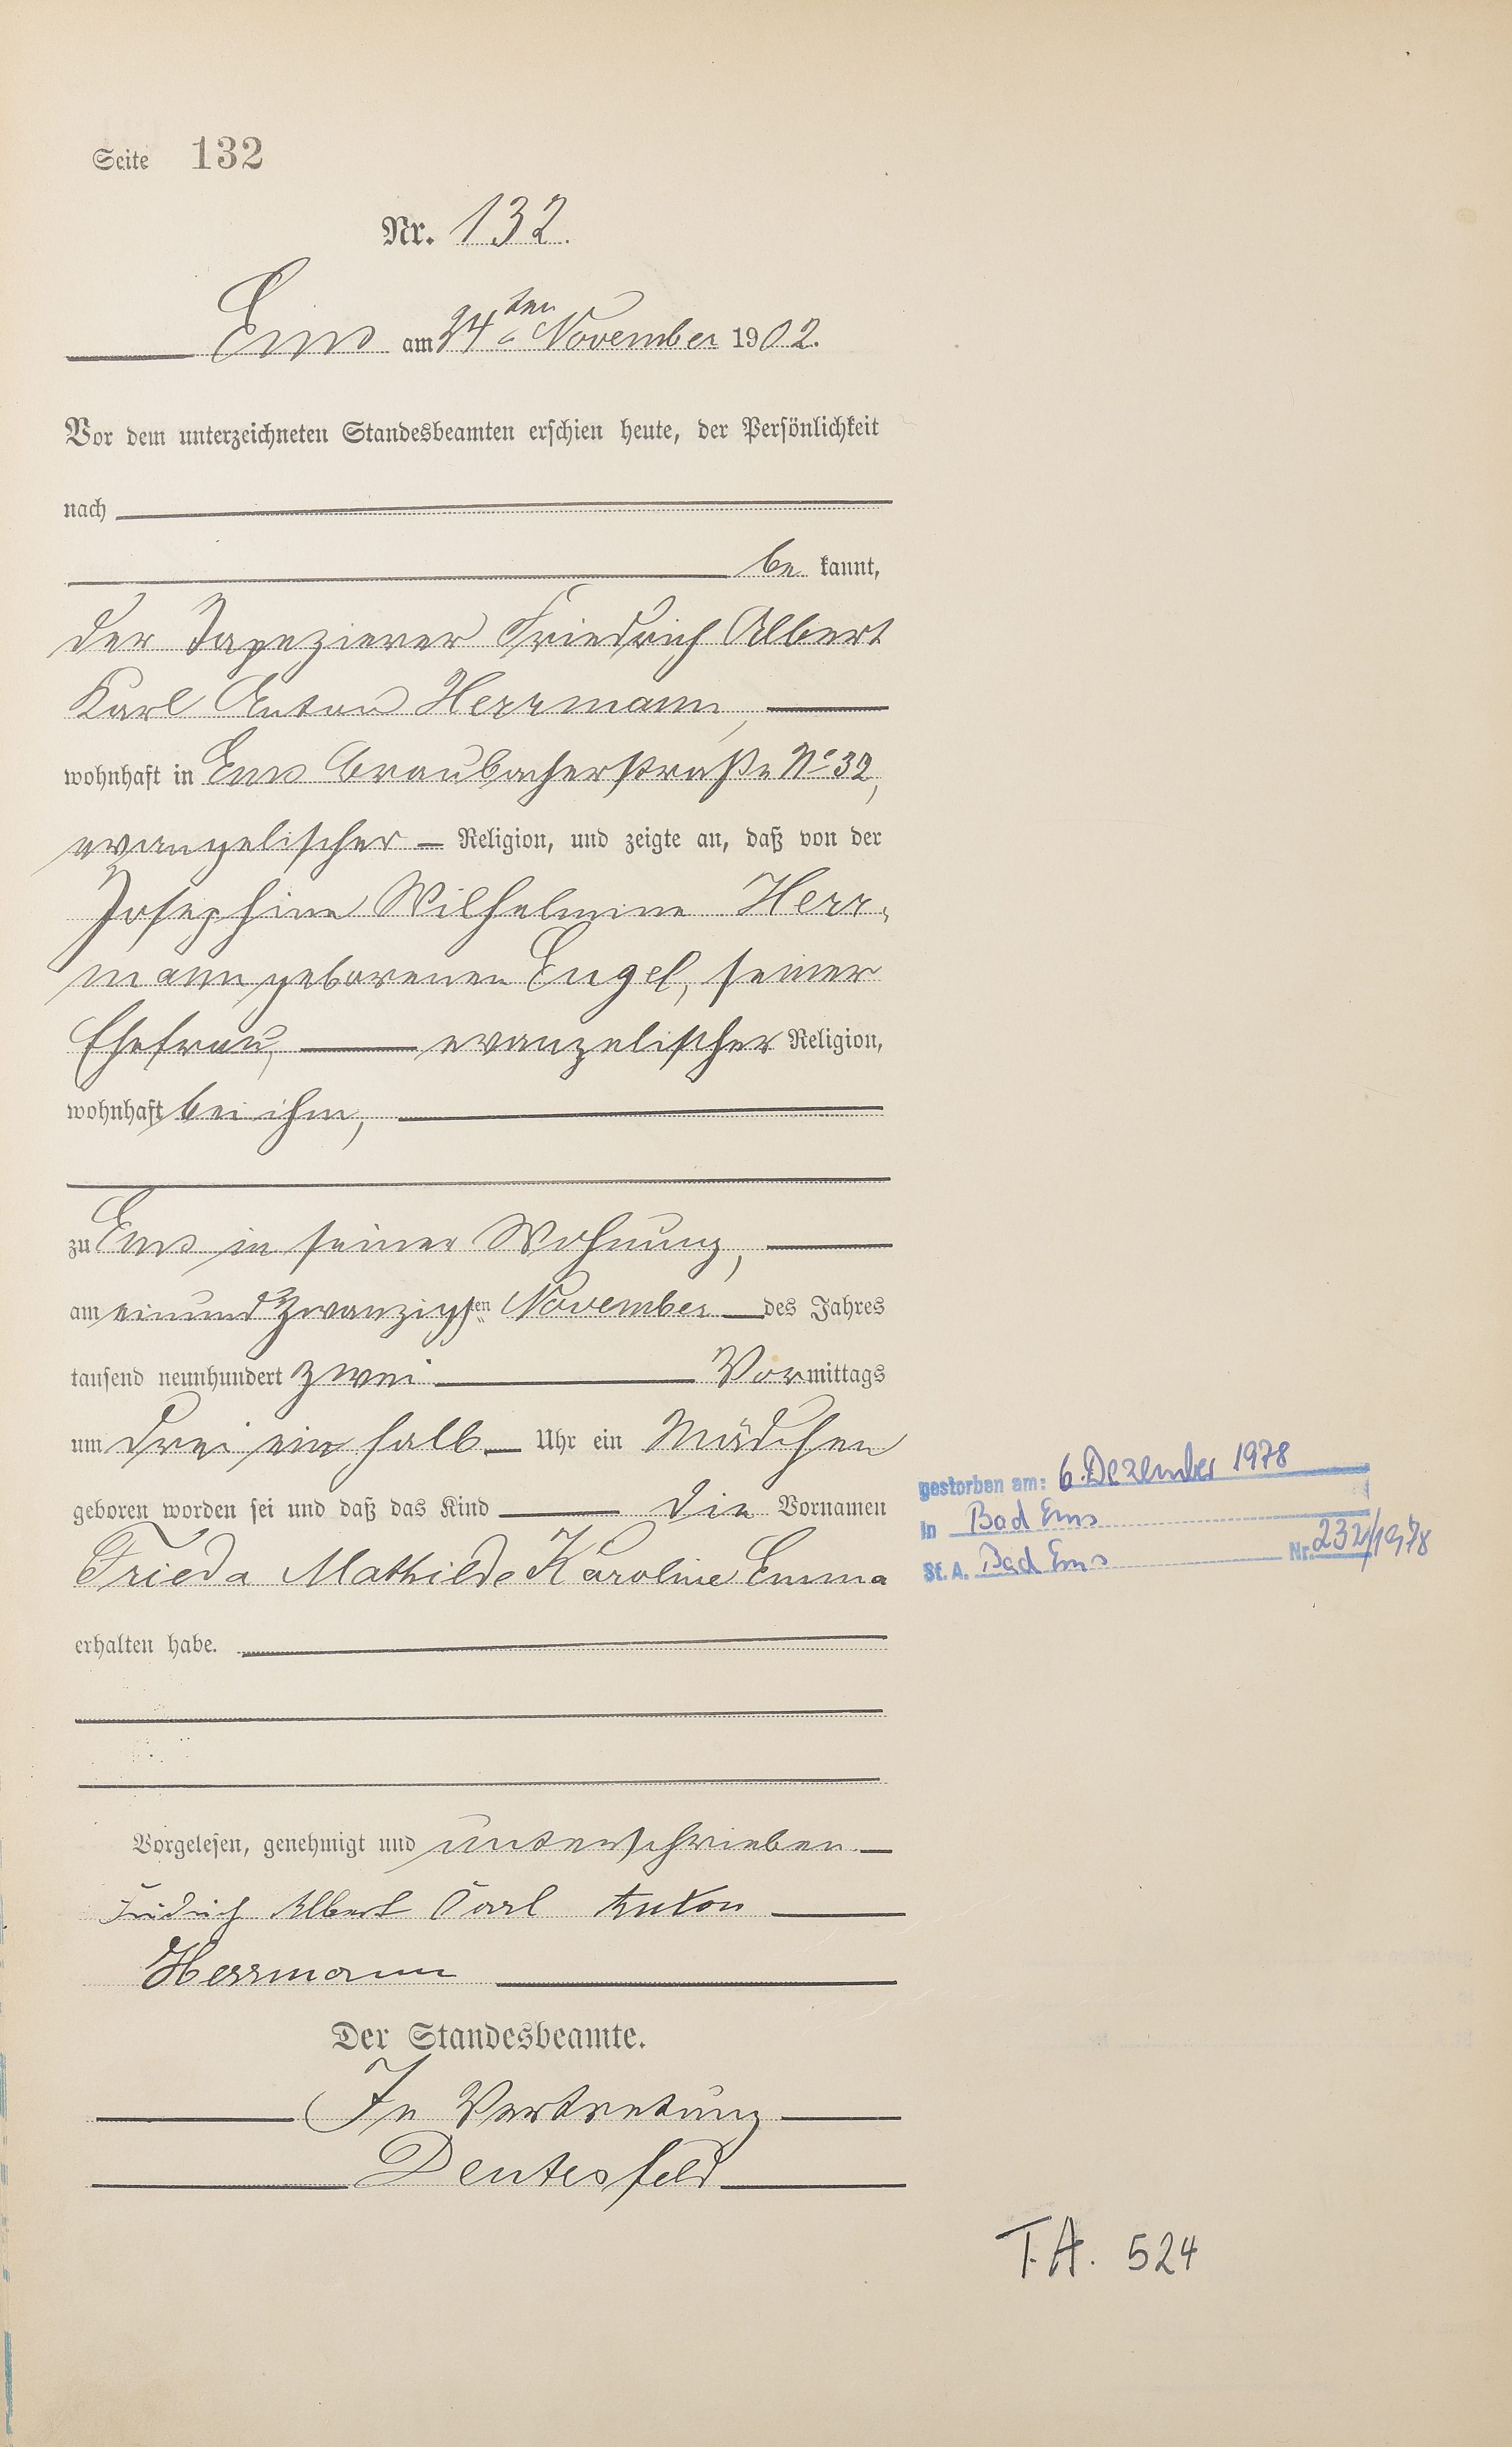 Seite 132
Nr. 132.
Ems am 24ten November 1902.
Vor dem unterzeichneten Standesbeamten erschien heute, der Persönlichkeit
nach
be kannt,
der Tapezierer Friedrich Albert
Karl Anton Herrmann,
wohnhaft in Ems Braubacherstraße No 32,
evangelischer Religion, und zeigte an, daß von der
Josephine Wilhelmine Herr-
mann geborenen Engel, seiner
Ehefrau, evangelischer Religion,
wohnhaft bei ihm,
zu Ems in seiner Wohnung,
am einund zwanzigsten November des Jahres
tausend neunhundert zwei Vormittags
um drei ein halb Uhr ein Mädchen
geboren worden sei und daß das Kind die Vornamen
Frieda Mathilde Karoline Emma
erhalten habe.
gestorben am: 6. Dezember 1978
in Bad Ems
St. A. Bad Ems Nr. 232/1978
Vorgelesen, genehmigt und unterschrieben.
Friedrich Albert Carl Anton
Herrmann
Der Standesbeamte.
In Vertretung
Deutesfeld
T.A. 524